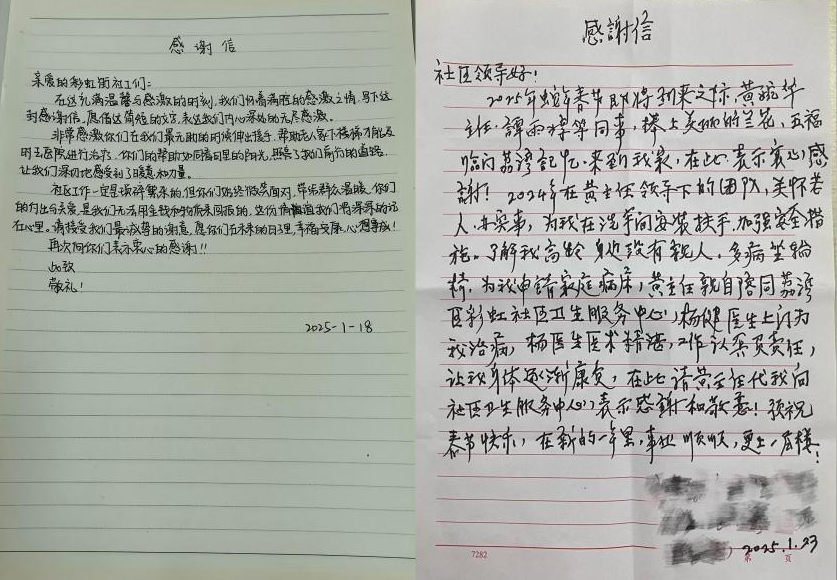 感谢信
亲爱的彩虹街社工们:
在这充满温馨与感激的时刻,我们怀着满腔的感激之情,写下这
封感谢信。愿借这简短的文字,表达我们内心深处的无尽感激。
非常感激你们在我们最无助的时候伸出援手,帮助老人家下楼梯才能及
时去医院进行治疗。你们的帮助如同春日里的阳光,照亮了我们前行的道路,
让我们深切地感受到了温暖和力量。
社区工作一定是琐碎繁杂的,但你们始终微笑面对,带给群众温暖,你们
的付出与关爱,是我们无法用金钱和物质来回报的,这份情谊我们将深深的记
在心里。请接受我们最诚挚的谢意,愿你们在未来的日子里,幸福安康,心想事成!
再次向你们表示衷心的感谢!!
此致
敬礼!
2025-1-18
感謝信
社区领导好!
2025年蛇年春节即将到来之际,黄琬华
主任、譚雨婷等同事,捧上美丽的兰花,五福
临门荔湾記忆,来到我家,在此表示衷心感
謝!2024年在黄主任领导下的团队,关怀老
人,办实事,为我在洗手间安装扶手,加强安全措
施。了解我高龄身边没有親人,多病坐輪
椅,为我申請家庭病床,黄主任親自陪同荔湾
区彩虹社区卫生服务中心,杨健医生上门为
我治病,杨医生医术精湛,工作认真负责任,
让我身体逐渐康复,在此请黄主任代我向
社区卫生服务中心表示感謝和敬意!预祝
春节快乐,在新的一年里,事业顺顺,更上一层楼!
2025.1.23
7282
第 页